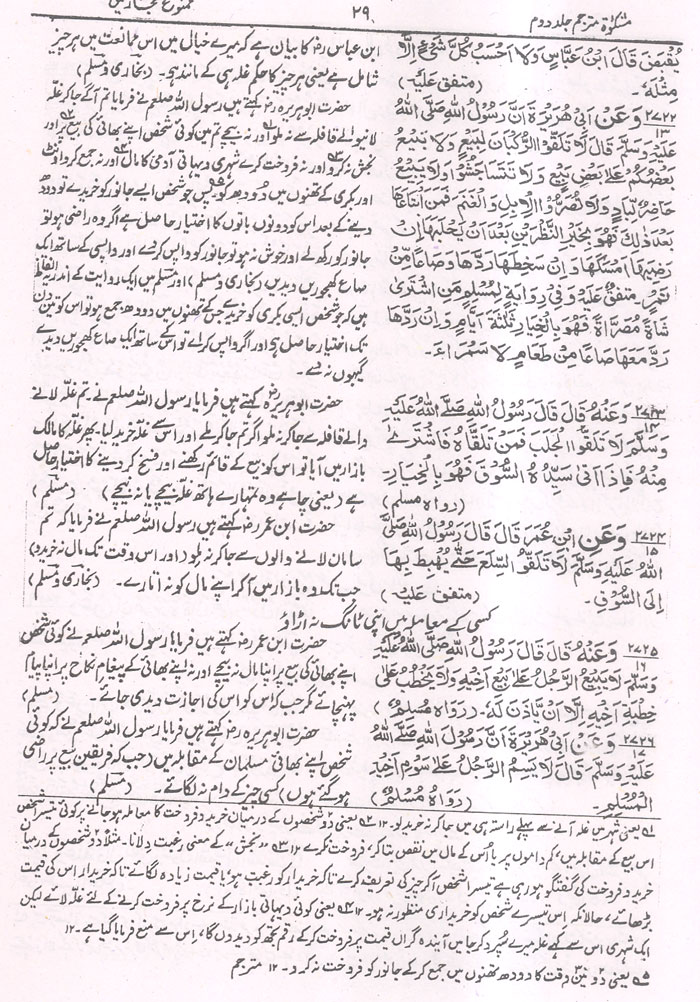 مشکوٰۃ مترجم جلد دوم
۲۹
يُقْبَضَ قَالَ ابْنُ عَبَّاسٍ وَلَا اَحْسِبُ كُلَّ شَيْءٍ اِلَّا
مِثْلَهٗ (متفق علیہ)
۲۷۲۲
۱۳
وَعَنْ اَبِيْ هُرَيْرَةَ اَنَّ رَسُوْلَ اللّٰهِ صَلَّى اللّٰهُ
عَلَيْهِ وَسَلَّمَ قَالَ لَا تَلَقَّوُا الرُّكْبَانَ لِبَيْعٍ وَلَا يَبِيْعُ
بَعْضُكُمْ عَلٰى بَعْضٍ بَيْعٍ وَلَا تَنَاجَشُوْا وَلَا يَبِيْعُ
حَاضِرٌ لِبَادٍ وَلَا تُصَرُّوا الْاِبِلَ وَالْغَنَمَ فَمَنِ ابْتَاعَهَا
بَعْدَ ذٰلِكَ فَهُوَ بِخَيْرِ النَّظَرَيْنِ بَعْدَ اَنْ يَّحْلُبَهَا اِنْ
رَضِيَهَا اَمْسَكَهَا وَاِنْ سَخِطَهَا رَدَّهَا وَصَاعًا مِّنْ
تَمْرٍ متفق علیہ وَفِيْ رِوَايَةٍ لِمُسْلِمٍ مَنِ اشْتَرٰى
شَاةً مُصَرَّاةً فَهُوَ بِالْخِيَارِ ثَلٰثَةَ اَيَّامٍ وَاِنْ رَدَّهَا
رَدَّ مَعَهَا صَاعًا مِّنْ طَعَامٍ لَا سَمْرَاءَ۔
وَعَنْهُ قَالَ قَالَ رَسُوْلُ اللّٰهِ صَلَّى اللّٰهُ عَلَيْهِ
وَسَلَّمَ لَا تَلَقَّوُا الْجَلَبَ فَمَنْ تَلَقَّاهُ فَاشْتَرٰى
مِنْهُ فَاِذَا اَتٰى سَيِّدُهُ السُّوْقَ فَهُوَ بِالْخِيَارِ۔
(رواہ مسلم)
۲۷۲۴
۱۵
وَعَنِ ابْنِ عُمَرَ قَالَ قَالَ رَسُوْلُ اللّٰهِ صَلَّى
اللّٰهُ عَلَيْهِ وَسَلَّمَ لَا تَلَقَّوُا السِّلَعَ حَتّٰى يُهْبَطَ بِهَا
اِلَى السُّوْقِ۔ (متفق علیہ)
۲۷۲۵
۱۶
وَعَنْهُ قَالَ قَالَ رَسُوْلُ اللّٰهِ صَلَّى اللّٰهُ عَلَيْهِ
وَسَلَّمَ لَا يَبِيْعُ الرَّجُلُ عَلٰى بَيْعِ اَخِيْهِ وَلَا يَخْطُبُ عَلٰى
خِطْبَةِ اَخِيْهِ اِلَّا اَنْ يَّاْذَنَ لَهٗ۔ (رواہ مسلم)
۲۷۲۶
۱۷
وَعَنْ اَبِيْ هُرَيْرَةَ اَنَّ رَسُوْلَ اللّٰهِ صَلَّى اللّٰهُ
عَلَيْهِ وَسَلَّمَ قَالَ لَا يَسُمِ الرَّجُلُ عَلٰى سَوْمِ اَخِيْهِ
الْمُسْلِمِ۔ (رواہ مسلم)
ابن عباس رضؓ کا بیان ہے کہ میرے خیال میں اس ممانعت میں ہر چیز
شامل ہے یعنی ہر چیز کا حکم غلہ ہی کے مانند ہے۔ (بخاری و مسلم)
حضرت ابوہریرہ رضؓ کہتے ہیں رسول اللہ صلعم نے فرمایا تم آگے جا کر غلہ
لانیوالے قافلہ سے نہ ملو اور نہ بیچے تم میں کوئی شخص اپنے بھائی کی بیع پر اور
نجش نہ کرو اور نہ فروخت کرے شہری دیہاتی آدمی کا مال اور نہ جمع کرو اونٹ
اور بکری کے تھنوں میں دودھ کو۔ پس جو شخص ایسے جانور کو خریدے تو دودھ
دینے کے بعد اس کو دونوں باتوں کا اختیار حاصل ہے اگر وہ راضی ہو تو
جانور کو رکھ لے اور خوش نہ ہو تو جانور کو واپس کر دے اور واپسی کے ساتھ ایک
صاع کھجوریں دیدیں (بخاری و مسلم) اور مسلم میں ایک روایت کے اندر یہ الفاظ
ہیں کہ جو شخص ایسی بکری کو خریدے جس کے تھنوں میں دودھ جمع ہو تو اس کو تین دن
تک اختیار حاصل ہے اور اگر واپس کرے تو اس کے ساتھ ایک صاع کھجوریں دیدے
گیہوں نہ دے۔
حضرت ابوہریرہ رضؓ کہتے ہیں فرمایا رسول اللہ صلعم نے۔ تم غلہ لانے
والے قافلہ سے جا کر نہ ملو اگر تم جا کر ملے اور اس سے غلہ خرید لیا۔ پھر غلہ کا مالک
بازار میں آیا تو اس کو بیع کے قائم رکھنے اور فسخ کر دینے کا اختیار حاصل
ہے (یعنی چاہے وہ تمہارے ہاتھ غلہ بیچے یا نہ بیچے) (مسلم)
حضرت ابن عمر رضؓ کہتے ہیں رسول اللہ صلعم نے فرمایا کہ تم
سامان لانے والوں سے جا کر نہ ملو (اور اس وقت تک مال نہ خریدو)
جب تک وہ بازار میں آ کر اپنے مال کو نہ اتارے۔ (بخاری و مسلم)
کسی کے معاملہ میں اپنی ٹانگ نہ اڑاؤ
حضرت ابن عمر رضؓ کہتے ہیں فرمایا رسول اللہ صلعم نے کوئی شخص
اپنے بھائی کی بیع پر اپنا مال نہ بیچے اور نہ اپنے بھائی کے پیغام نکاح پر اپنا پیام
پہنچائے مگر جب کہ اس کو اس کی اجازت دیدی جائے۔ (مسلم)
حضرت ابوہریرہ رضؓ کہتے ہیں فرمایا رسول اللہ صلعم نے کہ کوئی
شخص اپنے بھائی مسلمان کے مقابلہ میں (جب کہ فریقین بیع پر راضی
ہو گئے ہوں) کسی چیز کے دام نہ لگائے۔ (مسلم)
۱ یعنی شہر میں غلہ آنے سے پہلے راستہ ہی میں جا کر نہ خرید لو۔ ۱۲ ۲ یعنی دو شخصوں کے درمیان خرید و فروخت کا معاملہ ہو جانے پر کوئی تیسرا شخص
اس بیع کے مقابلہ میں، کم داموں پر یا اس کے مال میں نقص بتا کر، فروخت نہ کرے ۱۲ ۳ "نجش" کے معنی رغبت دلانا۔ مثلاً دو شخصوں کے درمیان
خرید و فروخت کی گفتگو ہو رہی ہے تیسرا شخص آ کر چیز کی تعریف کرے تاکہ خریدار کو رغبت ہو، یا قیمت زیادہ لگائے تاکہ خریدار اس کی قیمت
بڑھائے، حالانکہ اس تیسرے شخص کو خریداری منظور نہ ہو۔ ۱۲ ۴ یعنی کوئی دیہاتی بازار کے نرخ پر فروخت کرنے کے لئے غلہ لائے لیکن
ایک شہری اس سے کہے غلہ میرے سپرد کر جا میں آیندہ گراں قیمت پر فروخت کر کے رقم تجھ کو دیدوں گا، اس سے منع فرمایا گیا ہے۔ ۱۲
۵ یعنی دو تین وقت کا دودھ تھنوں میں جمع کر کے جانور کو فروخت نہ کرو۔ ۱۲ مترجم